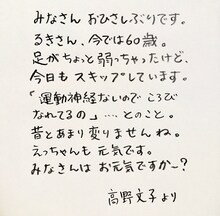 みなさん おひさしぶりです。
るきさん、今では60歳。
足がちょっと弱っちゃったけど、
今日も スキップしています。
「運動神経ないので ころび
なれてるの」‥‥とのこと。
昔とあまり変りませんね。
えっちゃんも 元気です。
みなさんは お元気ですか〜?
高野文子 より